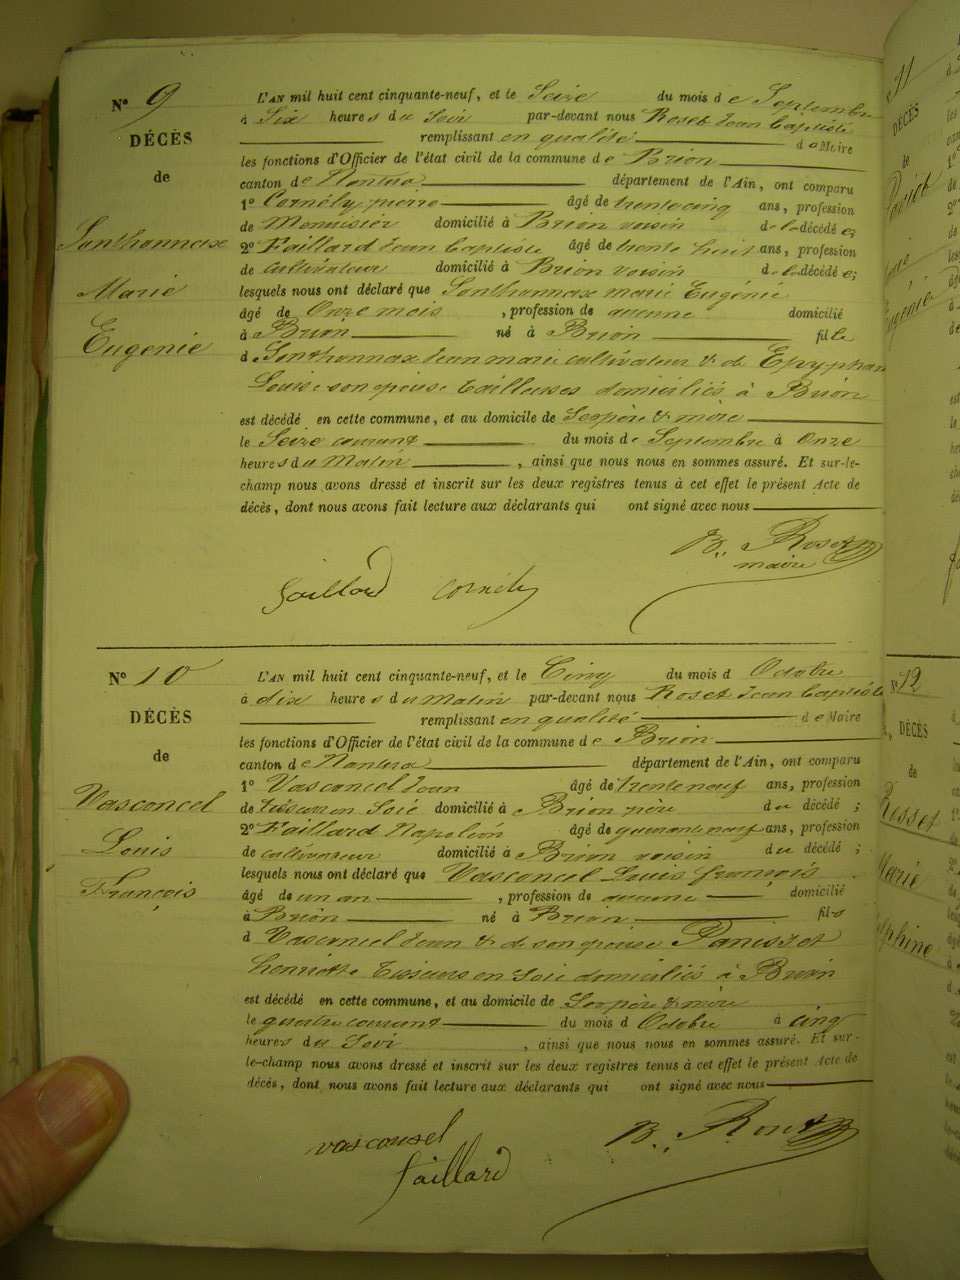 N° 9
DÉCÈS
de
Sonthonnax
Marie
Eugénie
L'AN mil huit cent cinquante-neuf, et le Seize du mois de Septembre
à Six heures du Soir par-devant nous Roset Jean Baptiste
remplissant en qualité de Maire
les fonctions d'Officier de l'état civil de la commune de Brion
canton de Nantua département de l'Ain, ont comparu
1° Cornély pierre âgé de trente cinq ans, profession
de Menuisier domicilié à Brion voisin de la décédée;
2° Faillard Jean Baptiste âgé de trente huit ans, profession
de cultivateur domicilié à Brion voisin de la décédée;
lesquels nous ont déclaré que Sonthonnax marie Eugénie
âgé de Onze mois, profession de aucune domicilié
à Brion né à Brion fille
de Sonthonnax Jean marie cultivateur & de Epyphan
Louise son épouse tailleuses domiciliés à Brion
est décédé en cette commune, et au domicile de Ses père & mère
le Seize courant du mois de Septembre à Onze
heures du Matin, ainsi que nous nous en sommes assuré. Et sur-le-
champ nous avons dressé et inscrit sur les deux registres tenus à cet effet le présent Acte de
décès, dont nous avons fait lecture aux déclarants qui ont signé avec nous
B. Roset
maire
faillard cornély
N° 10
DÉCÈS
de
Vasconcel
Louis
François
L'AN mil huit cent cinquante-neuf, et le Cinq du mois d Octobre
à dix heures du Matin par-devant nous Roset Jean Baptiste
remplissant en qualité de Maire
les fonctions d'Officier de l'état civil de la commune de Brion
canton de Nantua département de l'Ain, ont comparu
1° Vasconcel Jean âgé de trente neuf ans, profession
de tisseur en Soie domicilié à Brion père du décédé;
2° Faillard Napoléon âgé de quarante neuf ans, profession
de cultivateur domicilié à Brion voisin du décédé;
lesquels nous ont déclaré que Vasconcel Louis françois
âgé de un an, profession de aucune domicilié
à Brion né à Brion fils
d Vasconcel Jean & de son épouse Panisset
henriette tisseurs en Soie domiciliés à Brion
est décédé en cette commune, et au domicile de Ses père & mère
le quatre courant du mois d Octobre à cinq
heures du Soir, ainsi que nous nous en sommes assuré. Et sur-
le-champ nous avons dressé et inscrit sur les deux registres tenus à cet effet le présent Acte de
décès, dont nous avons fait lecture aux déclarants qui ont signé avec nous
vasconsel B. Roset
faillard
11
DÉCÈS
de
N° 12
DÉCÈS
de